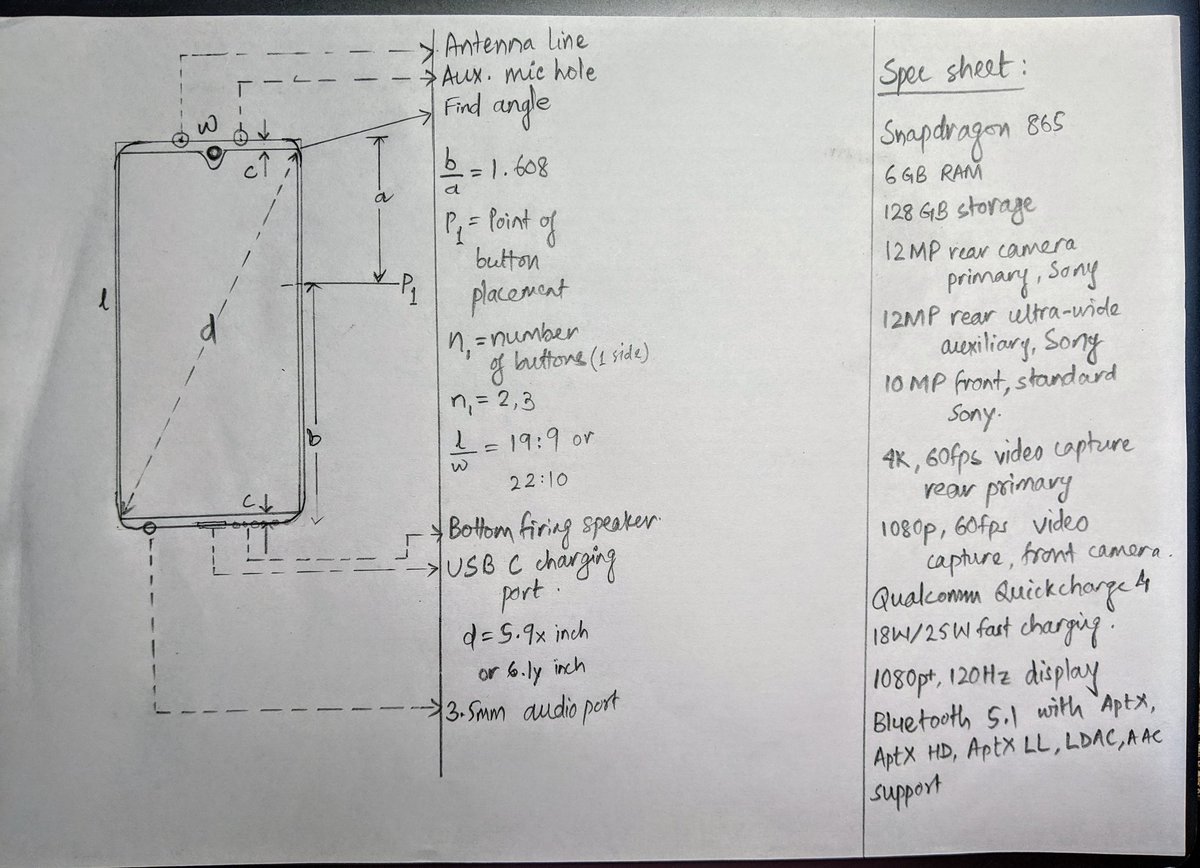 W
c
a
l
P₁
d
b
c
Antenna line
Aux. mic hole
Find angle
b/a = 1.608
P₁ = Point of
button
placement
n₁ = number
of buttons (1 side)
n₁ = 2,3
l/w = 19:9 or
22:10
Bottom firing speaker.
USB C charging
port.
d = 5.9x inch
or 6.1y inch
3.5mm audio port
Spec sheet:
Snapdragon 865
6GB RAM
128 GB storage
12MP rear camera
primary, Sony
12MP rear ultra-wide
auxiliary, Sony
10 MP front, standard
Sony.
4K, 60fps video capture
rear primary
1080p, 60fps video
capture, front camera.
Qualcomm Quickcharge 4
18W/25W fast charging.
1080p+, 120Hz display
Bluetooth 5.1 with AptX,
AptX HD, AptX LL, LDAC, AAC
support